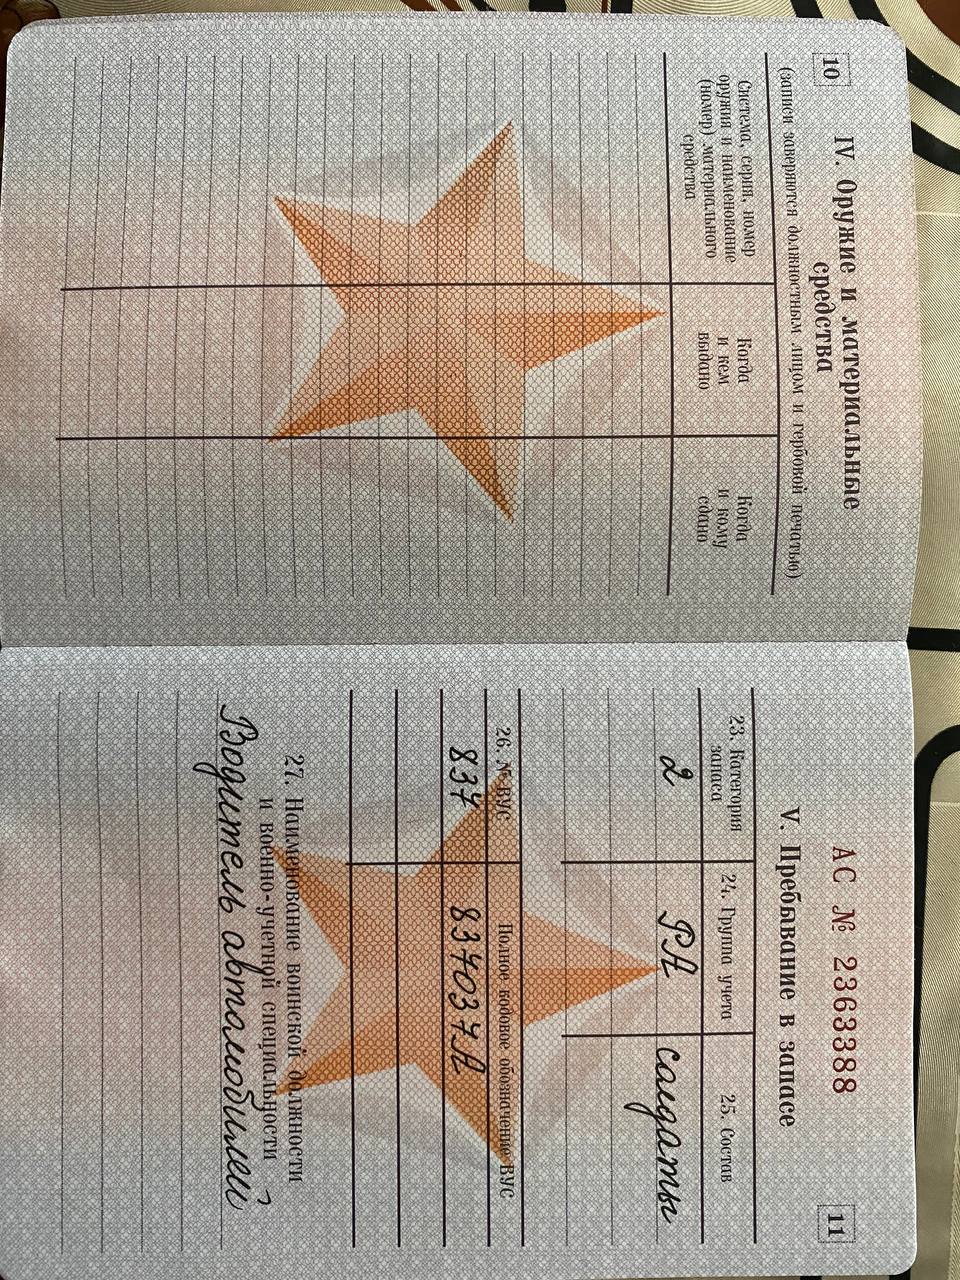 10
IV. Оружие и материальные
средства
(записи заверяются должностным лицом и гербовой печатью)
Система, серия, номер
оружия и наименование
(номер) материального
средства
Когда
и кем
выдано
Когда
и кому
сдано
АС № 2363388
11
V. Пребывание в запасе
23. Категория
запаса
24. Группа учета
25. Состав
2
РА
солдаты
26. № ВУС
Полное кодовое обозначение ВУС
837
837037А
27. Наименование воинской должности
и военно-учетной специальности
Водитель автомобилей